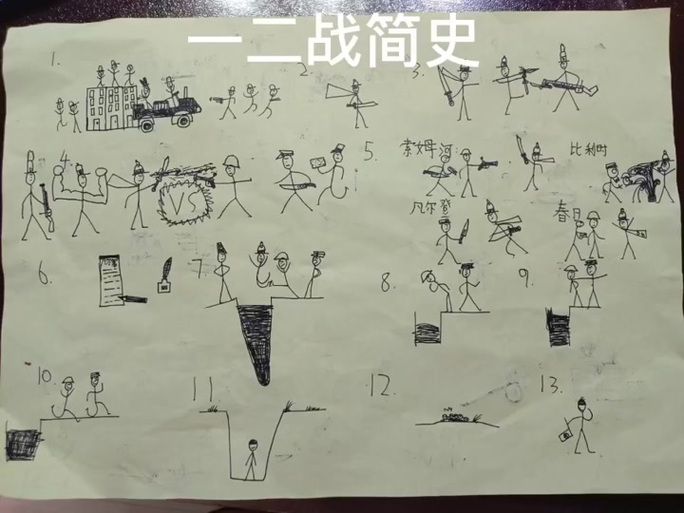 一二战简史
1.
2.
3.
4.
VS
5.
索姆河
比利时
凡尔登
春日
6.
7.
8.
9.
10.
11
12.
13.